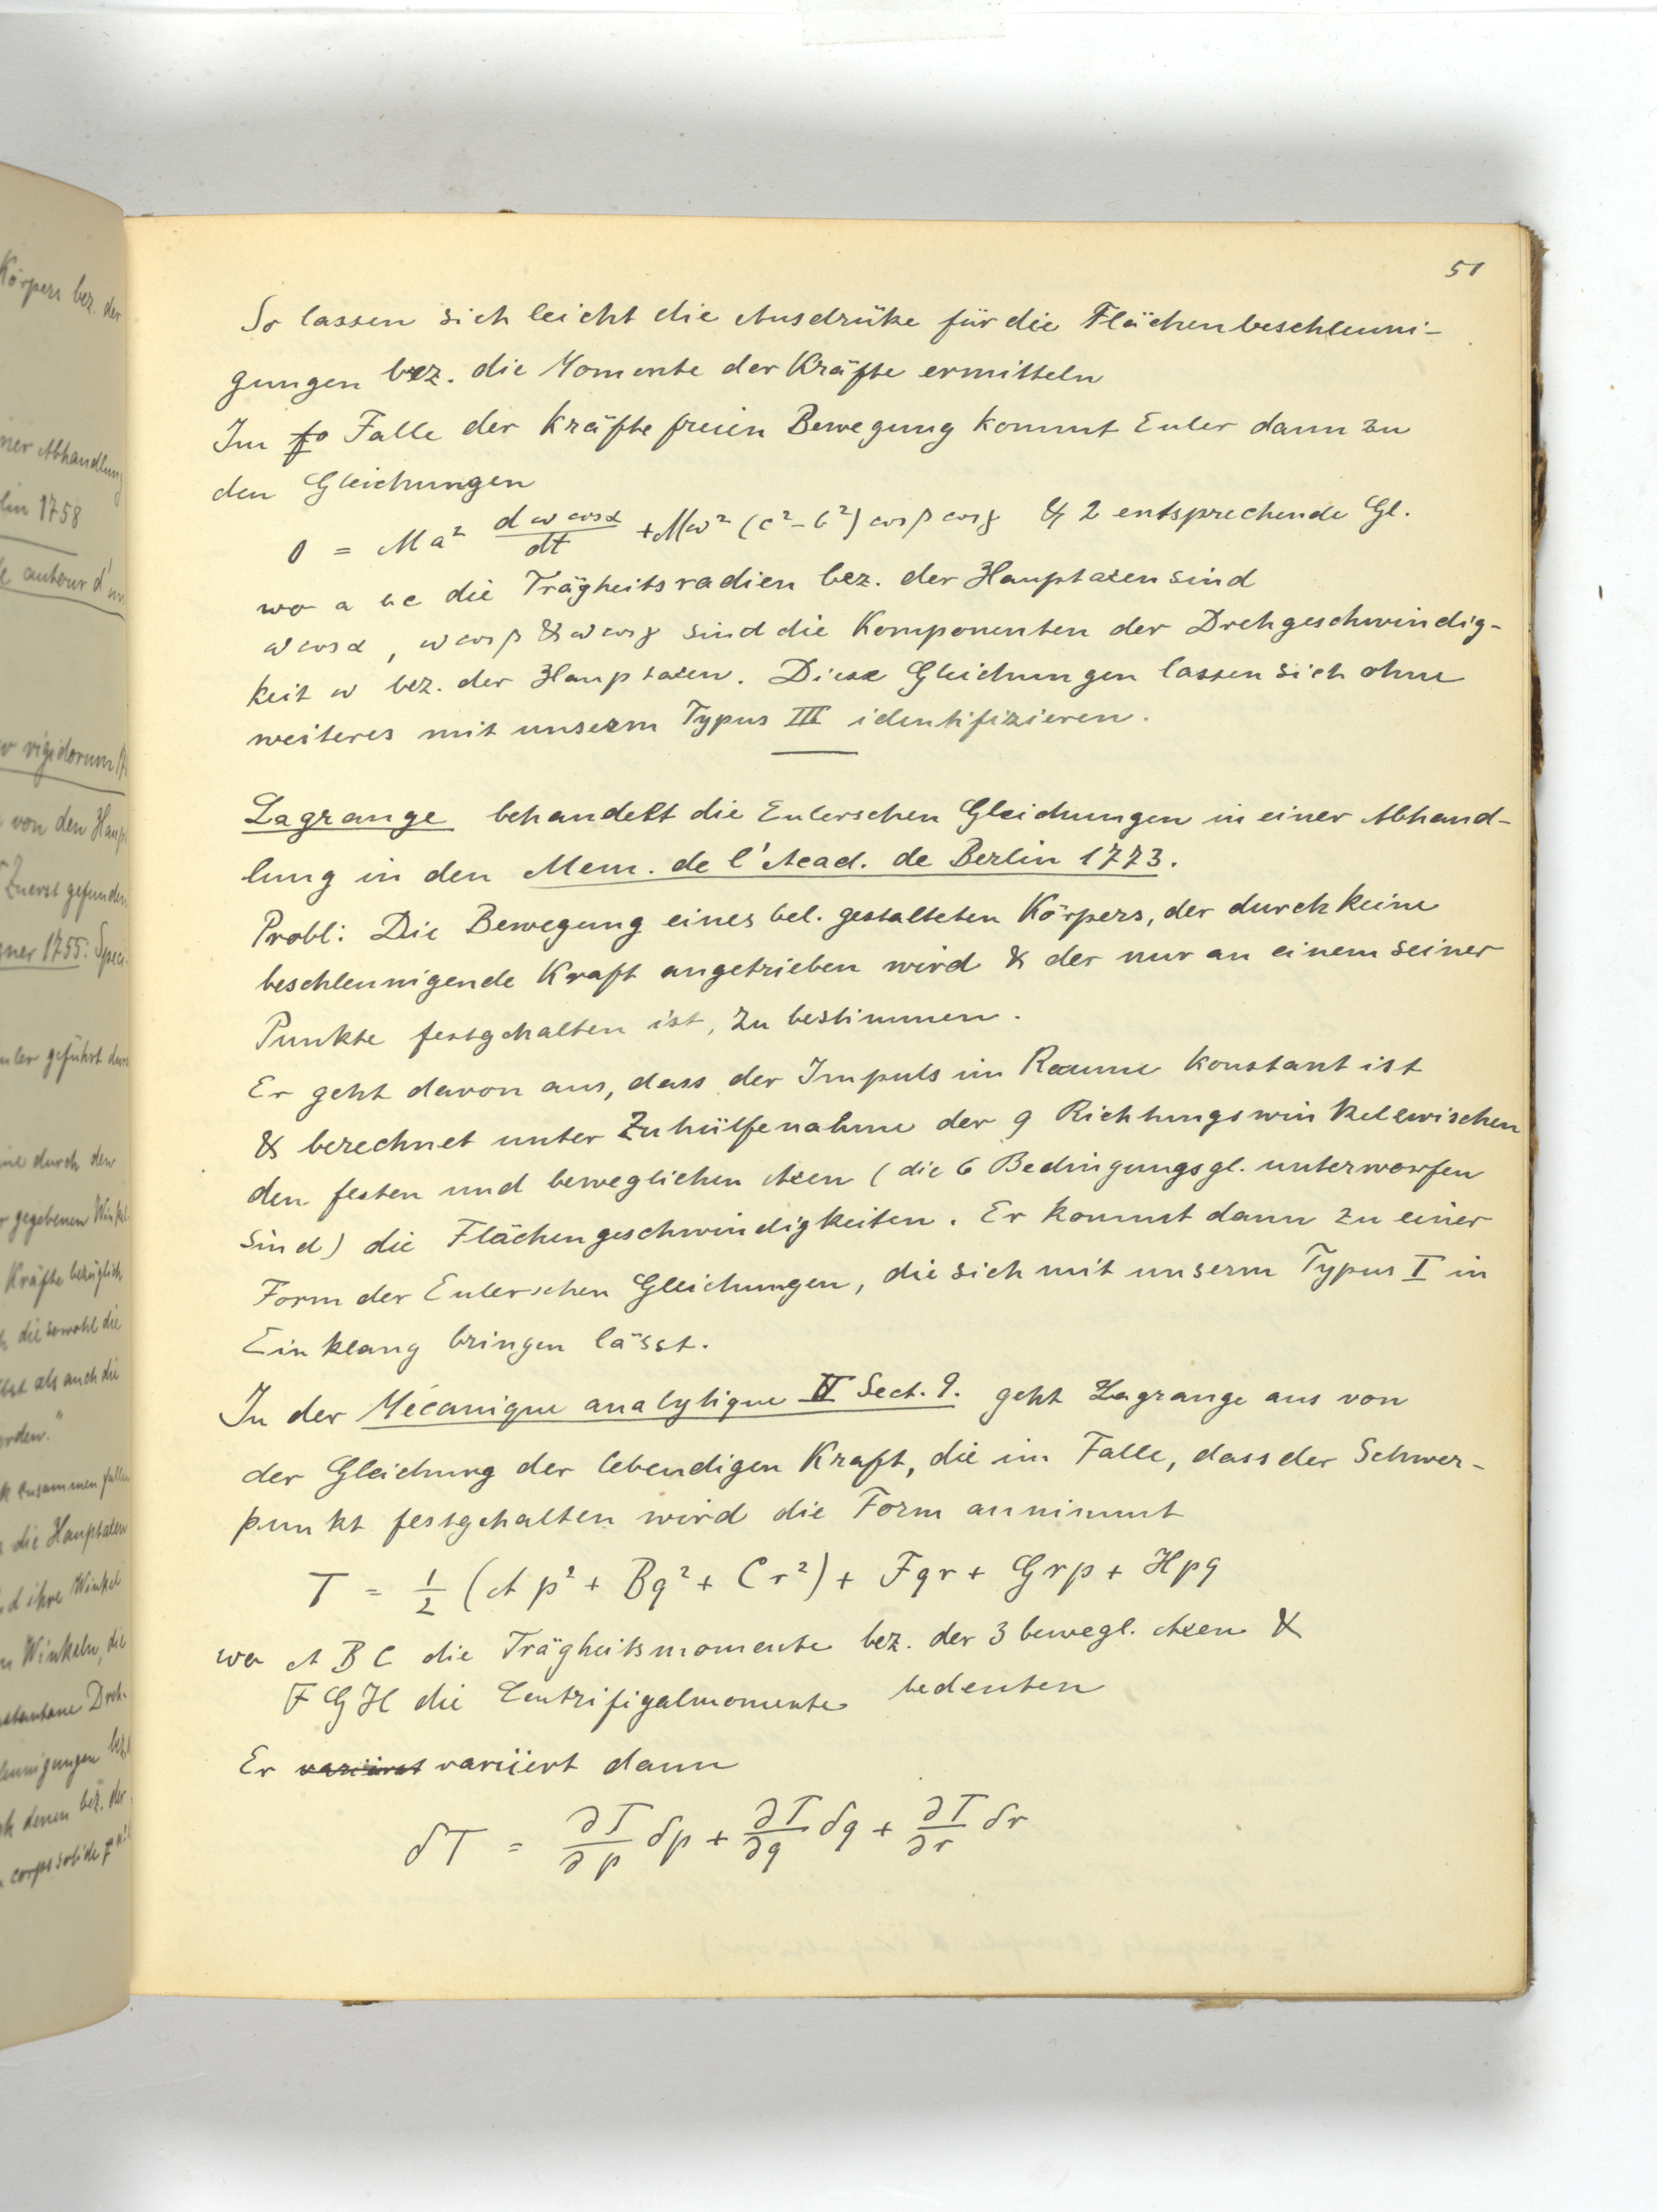 Körpers bez. der
iner Abhandlung
lin 1758
autour d'un
rigidorum
von den Haup
Zuerst gefunden
gner 1755: Speci-
uler geführt durch
ine durch den
r gegebenen Winkel
Kräfte bezüglich
die sowohl die
lbst als auch die
erden."
zusammen fallen
die Hauptaxen
d ihre Winkel
n Winkeln, die
nstantane Dreh-
leunigungen bez.
denen bez. der
corps solide
51
So lassen sich leicht die Ausdrüke für die Flächenbeschleuni-
gungen bez. die Momente der Kräfte ermitteln
Im Falle der Kräftefreien Bewegung kommt Euler dann zu
den Gleichungen
0 = Ma² d ω cosα / dt + Mω² (c² - b²) cos β cos γ & 2 entsprechende Gl.
wo a b c die Trägheitsradien bez. der Hauptaxen sind
ω cos α, ω cos β & ω cos γ sind die Komponenten der Drehgeschwindig-
keit ω bez. der Hauptaxen. Diese Gleichungen lassen sich ohne
weiteres mit unserm Typus III identifizieren.
Lagrange behandelt die Eulerschen Gleichungen in einer Abhand-
lung in den Mem. de l'Acad. de Berlin 1773.
Probl: Die Bewegung eines bel. gestalteten Körpers, der durch keine
beschleunigende Kraft angetrieben wird & der nur an einem seiner
Punkte festgehalten ist, zu bestimmen.
Er geht davon aus, dass der Impuls im Raume konstant ist
& berechnet unter Zuhülfenahme der 9 Richtungswinkel zwischen
den festen und beweglichen Axen (die 6 Bedingungsgl. unterworfen
sind) die Flächengeschwindigkeiten. Er kommt dann zu einer
Form der Eulerschen Gleichungen, die sich mit unserm Typus I in
Einklang bringen lässt.
In der Mécanique analytique II Sect. 9. geht Lagrange aus von
der Gleichung der lebendigen Kraft, die im Falle, dass der Schwer-
punkt festgehalten wird die Form annimmt
T = 1/2 (A p² + B q² + C r²) + Fqr + Grp + Hpq
wo A B C die Trägheitsmomente bez. der 3 bewegl. Axen &
F G H die Centrifigalmomente bedeuten
Er variiert variiert dann
δT = ∂T/∂p δp + ∂T/∂q δq + ∂T/∂r δr